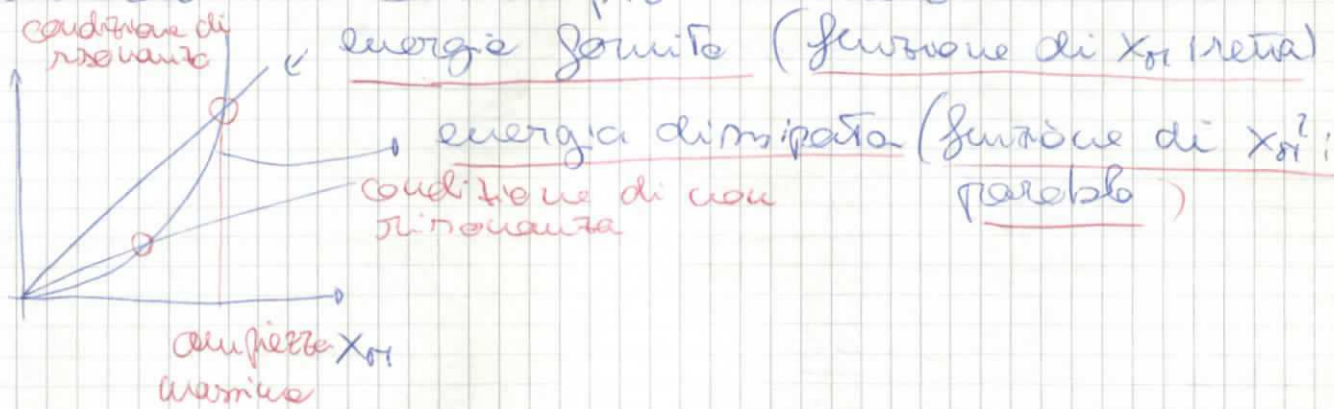 condizione di
risonanza
energia fornita (funzione di X₀₁ retta)
energia dissipata (funzione di X₀₁²:
parabola)
condizione di non
risonanza
ampiezza X₀₁
massima